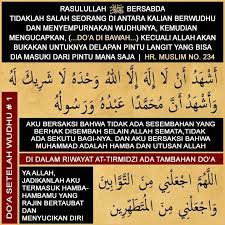 RASULULLAH ﷺ BERSABDA
TIDAKLAH SALAH SEORANG DI ANTARA KALIAN BERWUDHU
DAN MENYEMPURNAKAN WUDHUNYA, KEMUDIAN
MENGUCAPKAN, (...DO'A DI BAWAH...) KECUALI ALLAH AKAN
BUKAKAN UNTUKNYA DELAPAN PINTU LANGIT YANG BISA
DIA MASUKI DARI PINTU MANA SAJA | HR. MUSLIM NO. 234
DO'A SETELAH WUDHU # 1
أَشْهَدُ أَنْ لَا إِلَهَ إِلَّا اللَّهُ وَحْدَهُ لَا شَرِيكَ لَهُ
وَأَشْهَدُ أَنَّ مُحَمَّدًا عَبْدُهُ وَرَسُولُهُ
AKU BERSAKSI BAHWA TIDAK ADA SESEMBAHAN YANG
BERHAK DISEMBAH SELAIN ALLAH SEMATA,TIDAK
ADA SEKUTU BAGI-NYA. DAN AKU BERSAKSI BAHWA
MUHAMMAD ADALAH HAMBA DAN UTUSAN ALLAH
DI DALAM RIWAYAT AT-TIRMIDZI ADA TAMBAHAN DO'A
YA ALLAH,
JADIKANLAH AKU
TERMASUK HAMBA-
HAMBAMU YANG
RAJIN BERTAUBAT
DAN
MENYUCIKAN DIRI
اللَّهُمَّ اجْعَلْنِي مِنَ التَّوَّابِينَ
وَاجْعَلْنِي مِنَ الْمُتَطَهِّرِينَ